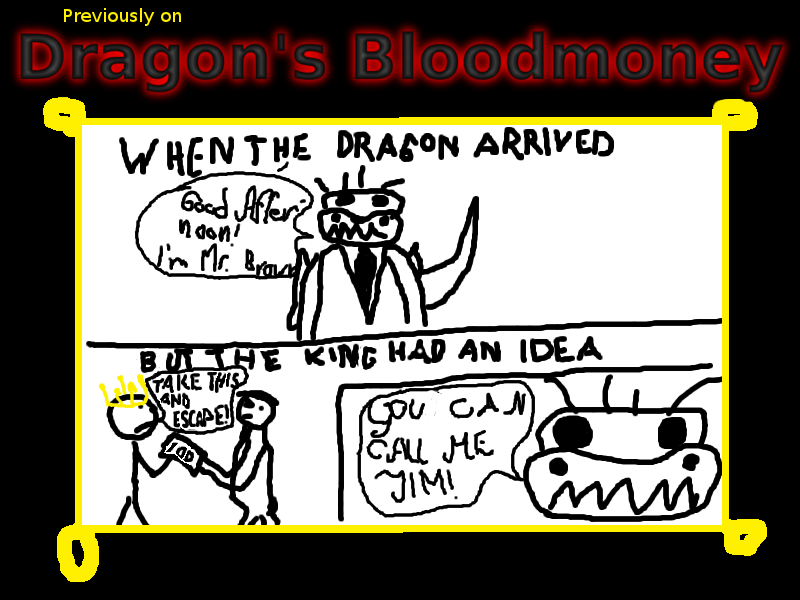 Previously on
Dragon's Bloodmoney
WHEN THE DRAGON ARRIVED
Good After-
noon!
I'm Mr. Brown
BUT THE KING HAD AN IDEA
TAKE THIS
AND
ESCAPE!
100
YOU CAN
CALL ME
JIM!